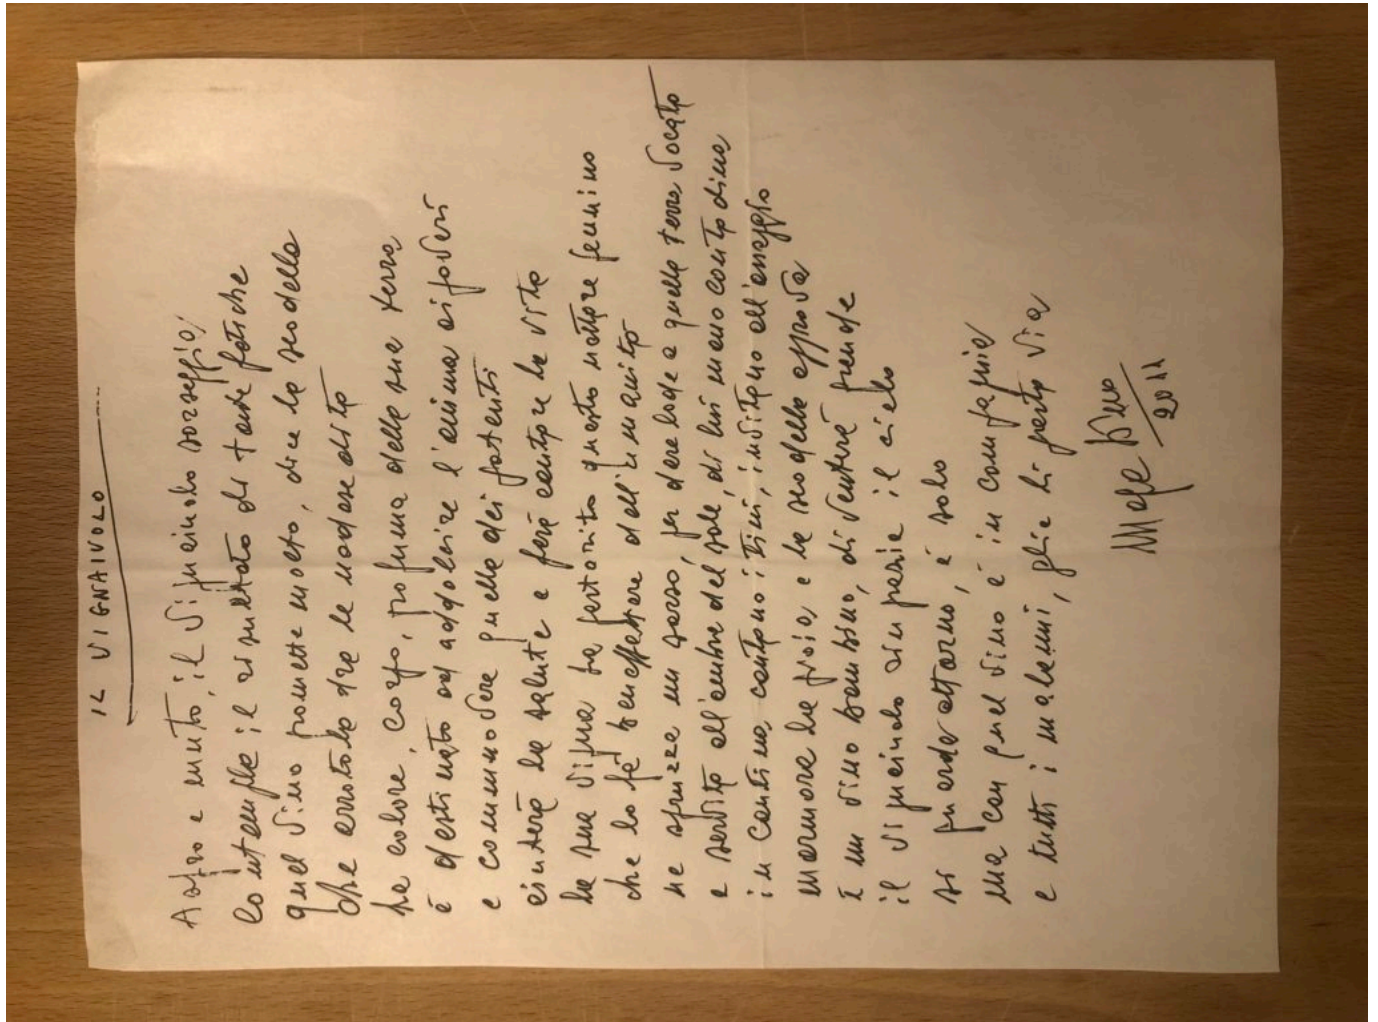 IL VIGNAIVOLO
Aspro e muto, il vignaiolo sorseggia,
lo stempre il risultato di tante fatiche
quel vino promette molto, dice la scodella
che arrotola tra le nodose dita
ha colore, corpo, profuma della sua terra
è destinato ad addolcire l'anima ai poveri
e commuovere quella dei potenti
aiuterà la salute e farà cantare la vita
la sua vigna ha partorito questo nettare femmino
che lo fa benefattore dell'umanità
ne spruzza un sorso, per dare lode a quella terra vocata
e servita all'ombra del sole, di lui mano contadina
in cantina cantano i tini, invitano all'assaggio
mormora la gioia, e la scodella approva
È un vino bambino, diventerà grande
il vignaiolo ringrazia il cielo
si guarda attorno, è solo
ma con quel vino è in compagnia
e tutti i malanni, glie li porta via
2011